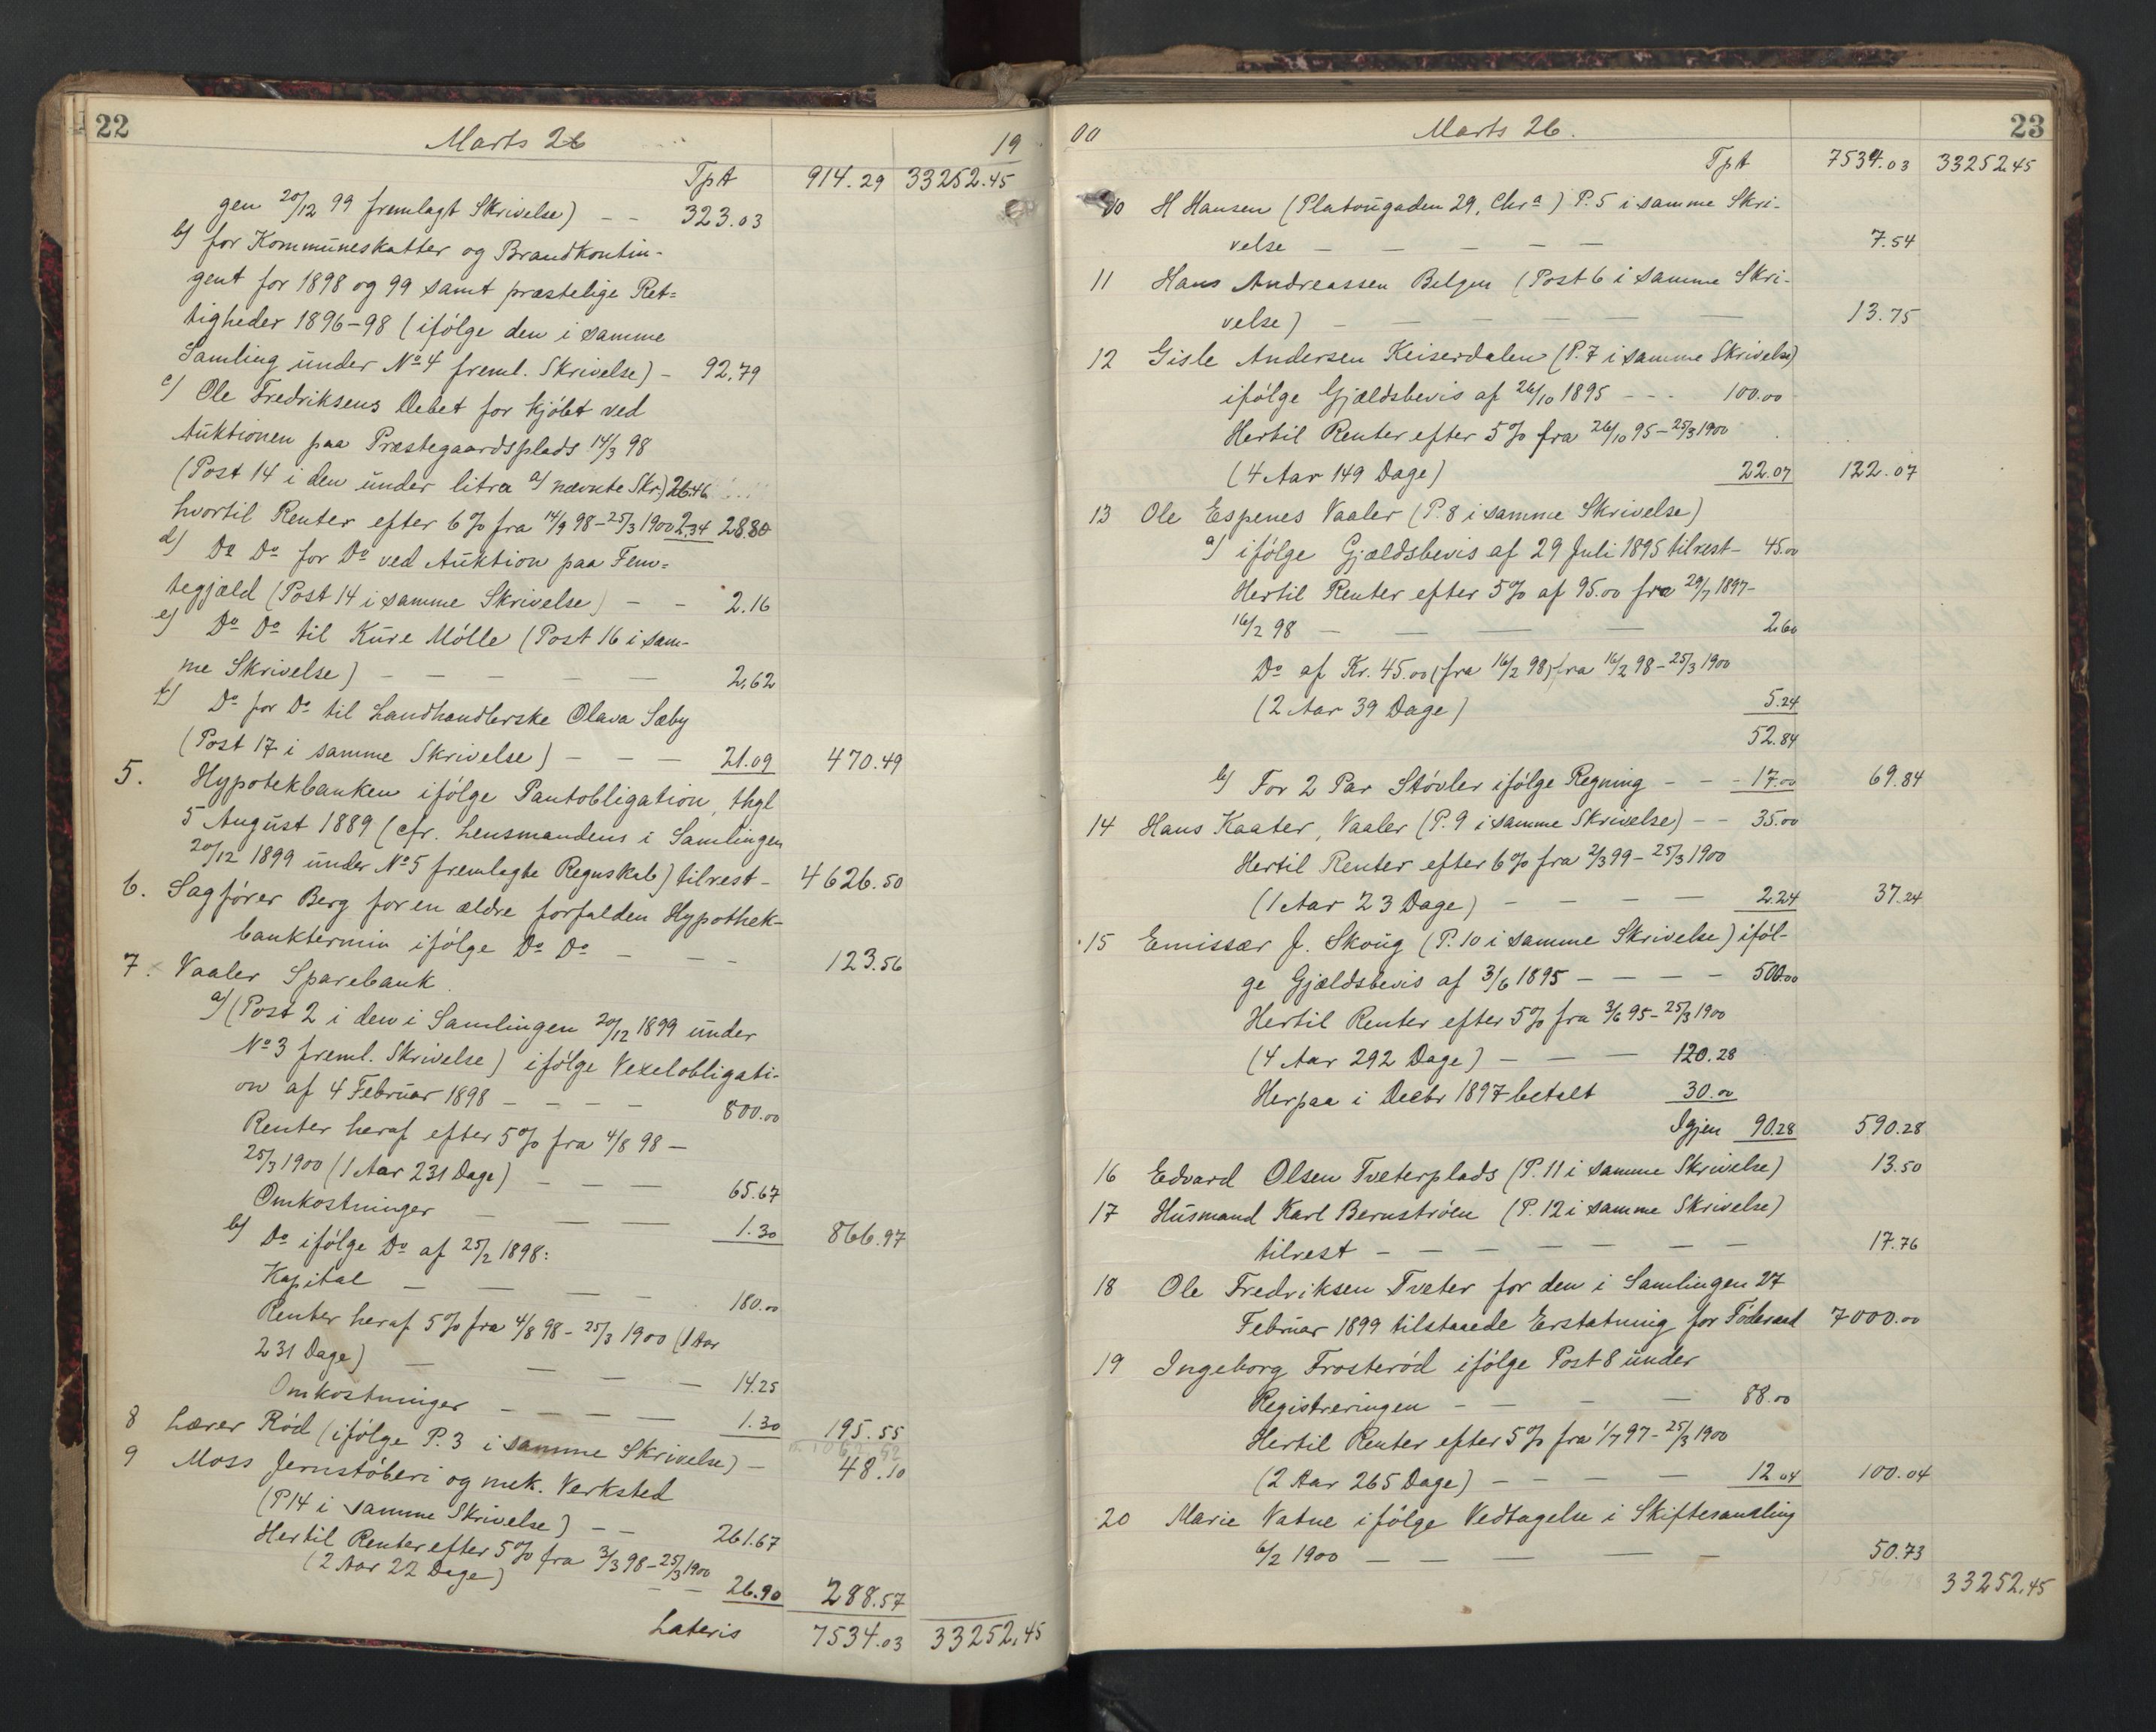 22
Marts 26
19
TpA 914.29 33252.45
gen 20/12 99 fremlagt Skrivelse) — — 323.03
b) for Kommüneskatter og Brandkontin-
gent for 1898 og 99 samt præstelige Ret-
tigheder 1896-98 (ifölge den i samme
Samling ünder No 4 freml. Skrivelse) - 92.79
c) Ole Fredriksens Debet for kjöbt ved
Aüktionen paa Præstegaardsplads 14/3 98
(Post 14 i den ünder litra a) nævnte Skr.) 26.46
hvortil Renter efter 6% fra 14/9 98-25/3 1900 2.34 28.80
d) Do Do for Do ved Aüktion paa Fem-
tegjæld (Post 14 i samme Skrivelse) — - 2.16
e) Do Do til Küre Mölle (Post 16 i sam-
me Skrivelse) — — — — — 2.62
f) Do for Do til Landhandlerske Olava Sæby
(Post 17 i samme Skrivelse) — — — 21.09 470.49
5. Hypotekbanken ifölge Pantobligation, thgl
5 Aügüst 1889 (cfr. Lensmandens i Samlingen
20/12 1899 ünder No 5 fremlagte Regnskab) tilrest - 4626.50
6. Sagförer Berg for en ældre forfalden Hypothek-
banktermin ifölge Do Do — — — 123.56
7. Vaaler Sparebank.
a) (Post 2 i den i Samlingen 20/12 1899 ünder
No 3 freml. Skrivelse) ifölge Vexelobligati-
on af 4 Febrüar 1898 — — — — 800.00
Renter heraf efter 5% fra 4/8 98 —
25/3 1900 (1 Aar 231 Dage) — — — 65.67
Omkostninger — — — 1.30 866.97
b) Do ifölge Do af 25/2 1898:
Kapital — — — — 180.00
Renter heraf 5% fra 4/8 98 - 25/3 1900 (1 Aar
231 Dage) — — — — 14.25
Omkostninger — — — — 1.30 195.55
8 Lærer Röd (ifölge P. 3 i samme Skrivelse) — 48.10
9 Moss Jernstöberi og mek. Verksted
(P14 i samme Skrivelse) — — 261.67
Hertil Renter efter 5% fra 3/3 98-25/3 1900
(2 Aar 22 Dage) — — 26.90 288.57
Lateris 7534.03 33252.45
00
Marts 26.
23
TpA 7534.03 33252.45
10 H Hansen (Platoügaden 29, Chra) P. 5 i samme Skri-
velse — — — — — 7.54
11 Hans Andreassen Belgen (Post 6 i samme Skri-
velse) — — — — — — 13.75
12 Gisle Andersen Keiserdalen (P. 7 i samme Skrivelse)
ifölge Gjældsbevis af 26/10 1895 - - - 100.00
Hertil Renter efter 5% fra 26/10 95-25/3 1900
(4 Aar 149 Dage) 22.07 122.07
13 Ole Espenes Vaaler (P. 8 i samme Skrivelse)
a) ifölge Gjældsbevis af 29 Juli 1895 tilrest - 45.00
Hertil Renter efter 5% af 95.00 fra 29/7 1897-
16/2 98 — — — — 2.60
Do af Kr. 45.00 (fra 16/2 98) fra 16/2 98-25/3 1900
(2 Aar 39 Dage) 5.24
52.84
b) For 2 Par Stövler ifölge Regning - - - 17.00 69.84
14 Hans Kaater, Vaaler (P. 9 i samme Skrivelse) - - 35.00
Hertil Renter efter 6% fra 2/3 99 - 25/3 1900
(1 Aar 23 Dage) — — — — 2.24 37.24
15 Emissær J. Skoüg (P. 10 i samme Skrivelse) iföl-
ge Gjældsbevis af 3/6 1895 — — — — 500.00
Hertil Renter efter 5% fra 3/6 95-25/3 1900
(4 Aar 292 Dage) — — — 120.28
Herpaa i Decbr 1897 betalt 30.00
Igjen 90.28 590.28
16 Edvard Olsen Tveterplads (P. 11 i samme Skrivelse) 13.50
17 Hüsmand Karl Bernströen (P. 12 i samme Skrivelse)
tilrest — — — — — — — 17.76
18 Ole Fredriksen Tveter for den i Samlingen 27
Febrüar 1899 tilstaaede Erstatning for Föderaad 7000.00
19 Ingeborg Frosteröd ifölge Post 8 ünder
Registreringen — — — — 88.00
Hertil Renter efter 5% fra 1/7 97-25/3 1900
(2 Aar 265 Dage) — — — — 12.04 100.04
20 Marie Vatne ifölge Vedtagelse i Skiftesamling
6/2 1900 — — — — — 50.73
33252.45